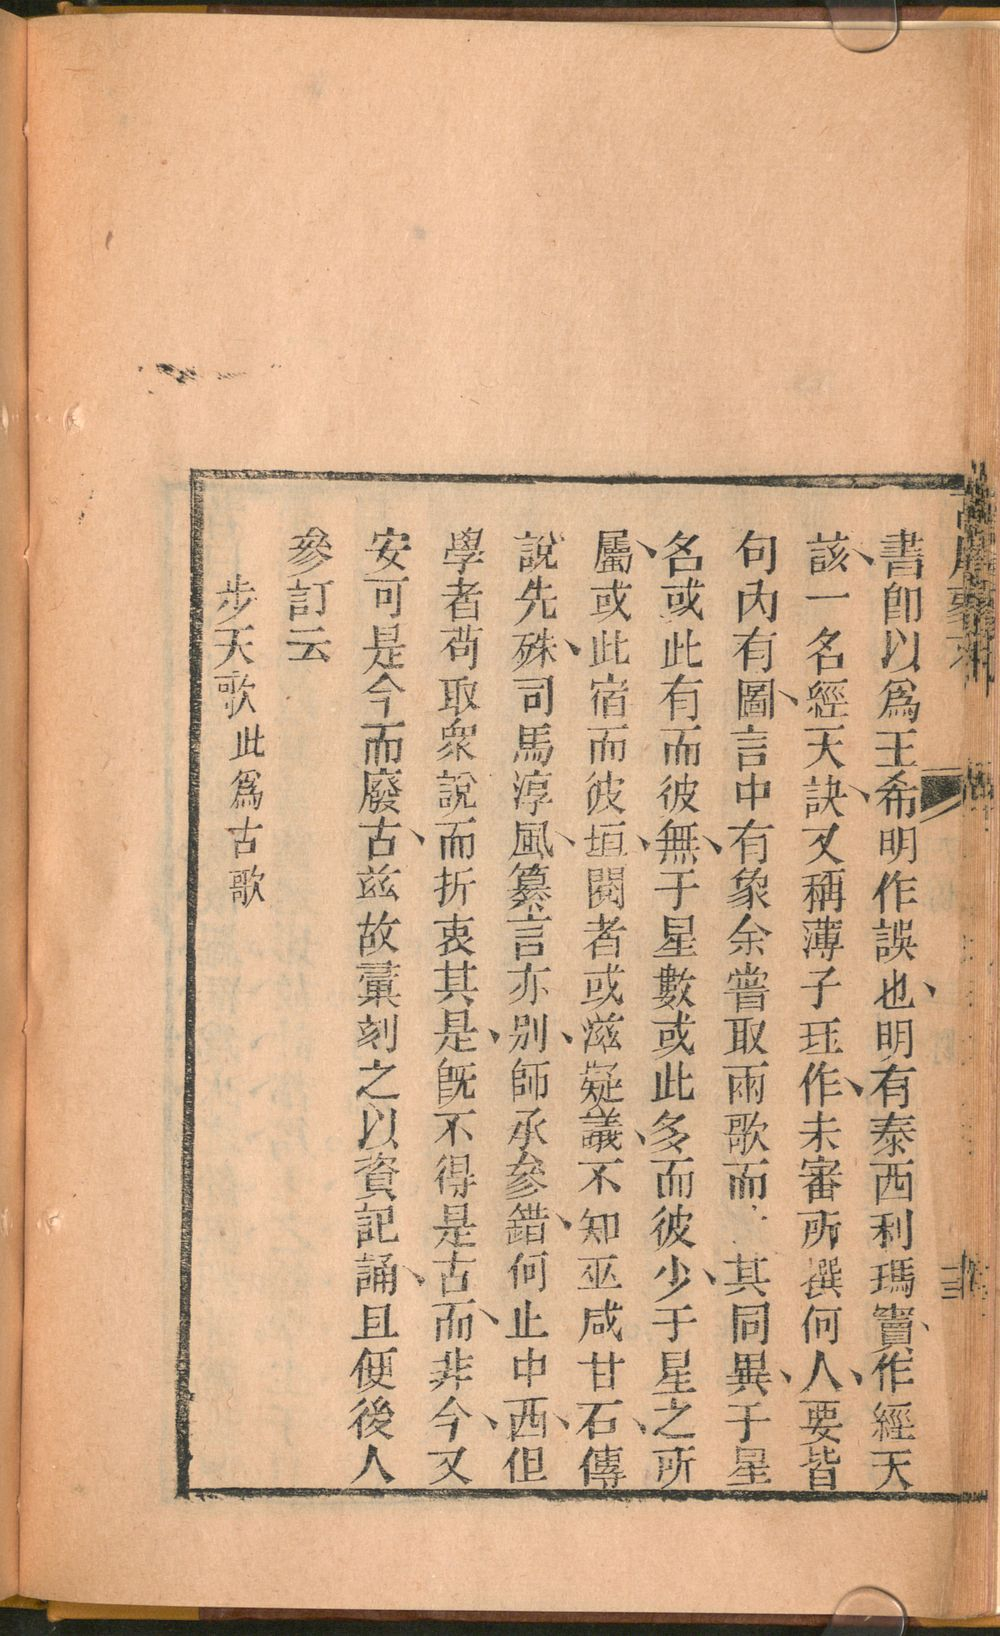 書卽以爲王希明作誤也明有泰西利瑪竇作經天
該一名經天訣又稱薄子珏作未審所撰何人要皆
句內有圖言中有象余嘗取兩歌而 其同異于星
名或此有而彼無于星數或此多而彼少于星之所
屬或此宿而彼垣閱者或滋疑議不知巫咸甘石傳
說先殊司馬淳風纂言亦別師承參錯何止中西但
學者苟取衆說而折衷其是旣不得是古而非今又
安可是今而廢古茲故彙刻之以資記誦且便後人
參訂云
步天歌此爲古歌